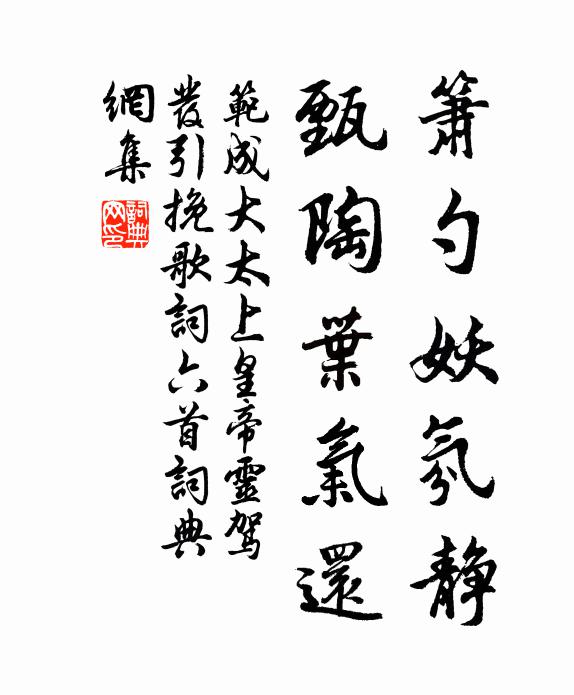 簫勺妖氛静
甄陶葉氣還
範成大太上皇帝靈駕
發引挽歌詞六首詞典
網集
詞典
网印